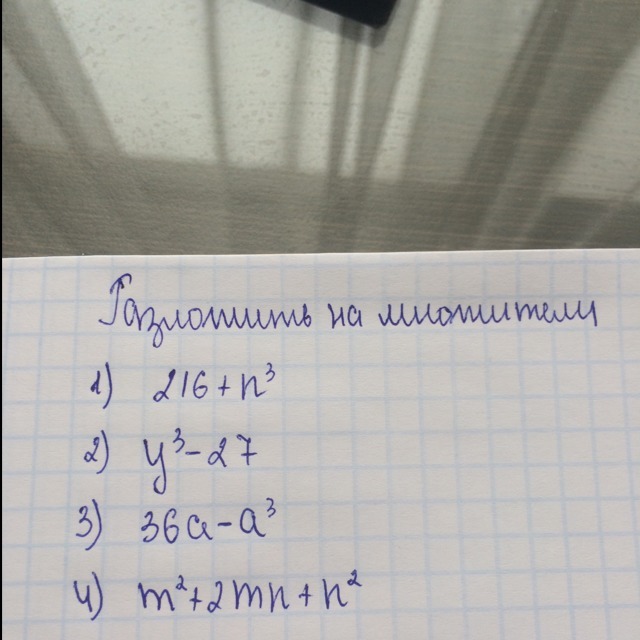 Разложить на множители
1) 216 + n³
2) y³ - 27
3) 36a - a³
4) m² + 2mn + n²